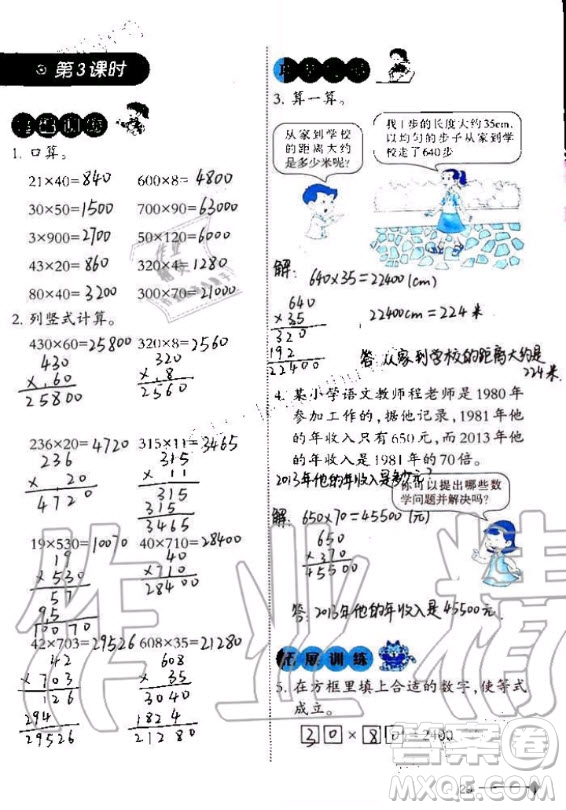 第3课时
基础训练
1. 口算。
21×40=840 600×8=4800
30×50=1500 700×90=63000
3×900=2700 50×50=2500
43×20=860 320×4=1280
80×40=3200 300×70=21000
2. 列竖式计算。
430×60=25800 320×8=2560
430 320
×.60 ×.8
25800 2560
236×20=4720 315×11=3465
236 315
× 20 × 11
4720 315
315
3465
19×530=10070 40×710=28400
19 40
×530 ×710
57 28400
95
10070
42×703=29526 608×35=21280
42 608
×703 × 35
126 3040
294 1824
29526 21280
3. 算一算。
从家到学校
的距离大约
是多少米呢?
我1步的长度大约35cm,
以均匀的步子从家到学
校走了640步
解: 640×35=22400(cm)
640
×35
320
192
22400
22400cm=224米
答:从家到学校的距离大约是
224米.
4. 某小学语文教师程老师是1980年
参加工作的,据他记录,1981年他
的年收入只有650元,而2013年他
的年收入是1981年的70倍。
2013年他的年收入是多少元?
你可以提出哪些数
学问题并解决吗?
解: 650×70=45500(元)
650
×70
45500
答:2013年他的年收入是45500元.
拓展训练
5. 在方框里填上合适的数字,使等式
成立。
30×80=2400
作业精
答案圈
MXQE.COM